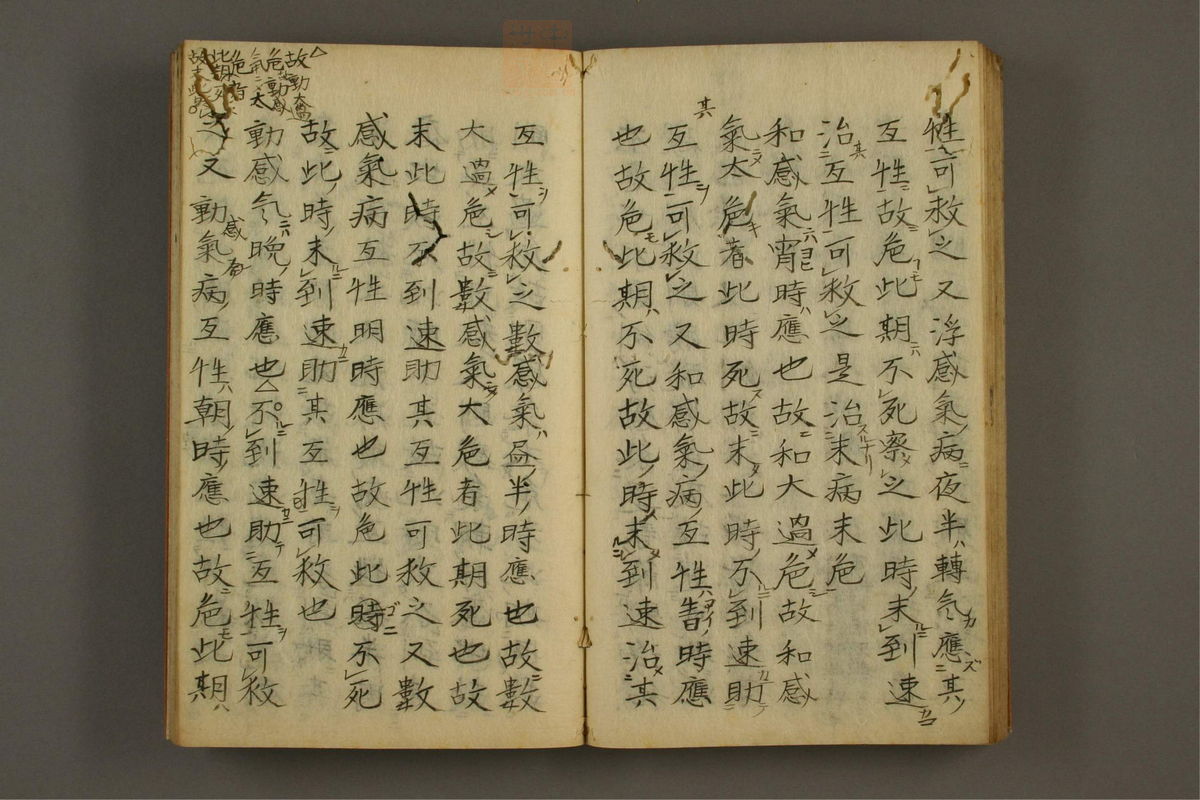 牲可救之又浮感氣病夜半轉气應其
互牲故危此期不死察之此時末到速
治互牲可救之是治末病末危
和感氣宵時應也故和大過危故和感
氣太危者此時死故末此時不到速助
互牲可救之又和感氣病互牲時應
也故危此期不死故此時末到速治其
互牲可救之數感氣昼半時應也故數
大過危故數感氣大危者此期死也故
末此時不到速助其互牲可救之又數
感氣病互牲明時應也故危此時不死
故此時末到速助其互牲可救也
動感气晩時應也△不到速助互牲可救
之又動氣病互牲朝時應也故危此期
△故動大過
危故動感
氣太
危者
此期死